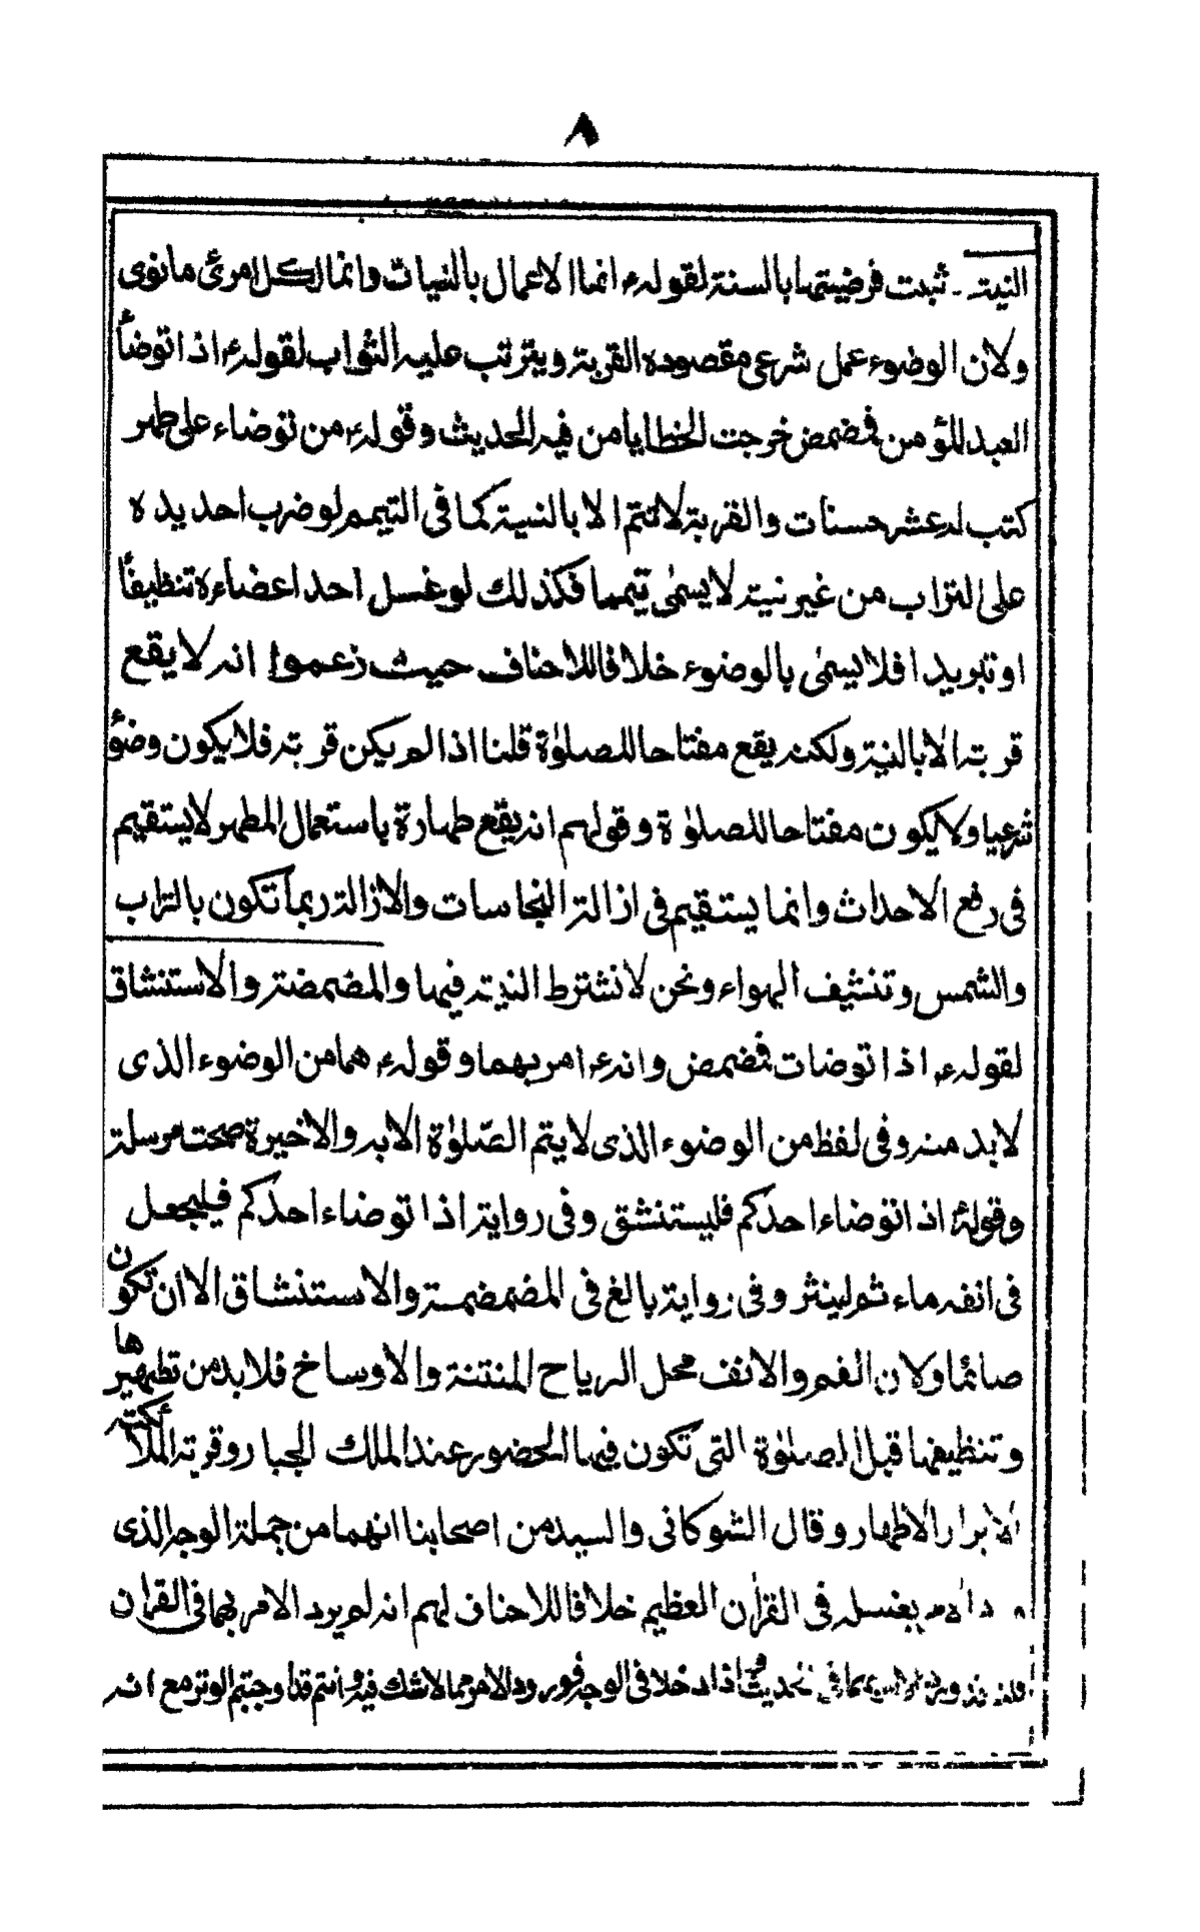 ٨
النية ـ ثبت فرضيتها بالسنة لقوله ع انما الاعمال بالنيات وانما لكل امرئ ما نوى
ولان الوضوء عمل شرعى مقصوده القربة ويترتب عليه الثواب لقوله ع اذا توضأ
العبد المؤمن فمضمض خرجت الخطايا من فيه الحديث وقوله ع من توضاء على طهر
كتب له عشر حسنات والقربة لا تتم الا بالنية كما فى التيمم لو ضرب احد يده
على التراب من غير نية لا يسمى تيمما فكذلك لو غسل احد اعضاءه تنظيفًا
او تبريدا فلا يسمى بالوضوء خلافا للاحناف حيث زعموا انه لا يقع
قربة الا بالنية ولكنه يقع مفتاحا للصلوٰة قلنا اذا لم يكن قربة فلا يكون وضؤ
شرعيا ولا يكون مفتاحا للصلوٰة وقولهم انه يقع طهارة باستعمال المطهر لا يستقيم
فى رفع الاحداث وانما يستقيم فى ازالة النجاسات والازالة ربما تكون بالتراب
والشمس وتنشيف الهواء ونحن لا نشترط النية فيها والمضمضة والاستنشاق
لقوله ع اذا توضات فمضمض وانه ع امر بهما وقوله ع هما من الوضوء الذى
لا بد منه وفى لفظ من الوضوء الذى لا يتم الصّلوٰة الا به والاخيرة صحت مرسلة
وقوله ع اذا توضاء احدكم فليستنشق وفى رواية اذا توضاء احدكم فليجعل
فى انفه ماء ثم لينثر وفى رواية بالغ فى المضمضة والاستنشاق الا ان تكون
صائما ولان الفم والانف محل الرياح المنتنة والاوساخ فلا بد من تطهيرها
وتنظيفها قبل الصلوٰة التى تكون فيها الحضور عند الملك الجبار وقربة الملائكة
الابرار الاطهار وقال الشوكانى والسيد من اصحابنا انهما من جملة الوجه الذى
بغسله فى القراٰن العظيم خلافا للاحناف لهم انه لم يرد الامر بهما فى القراٰن
اذ لا خلاف فى الوجه فورود الامر مما لا شك فيه وانتم قد اوجبتم الوتر مع انه